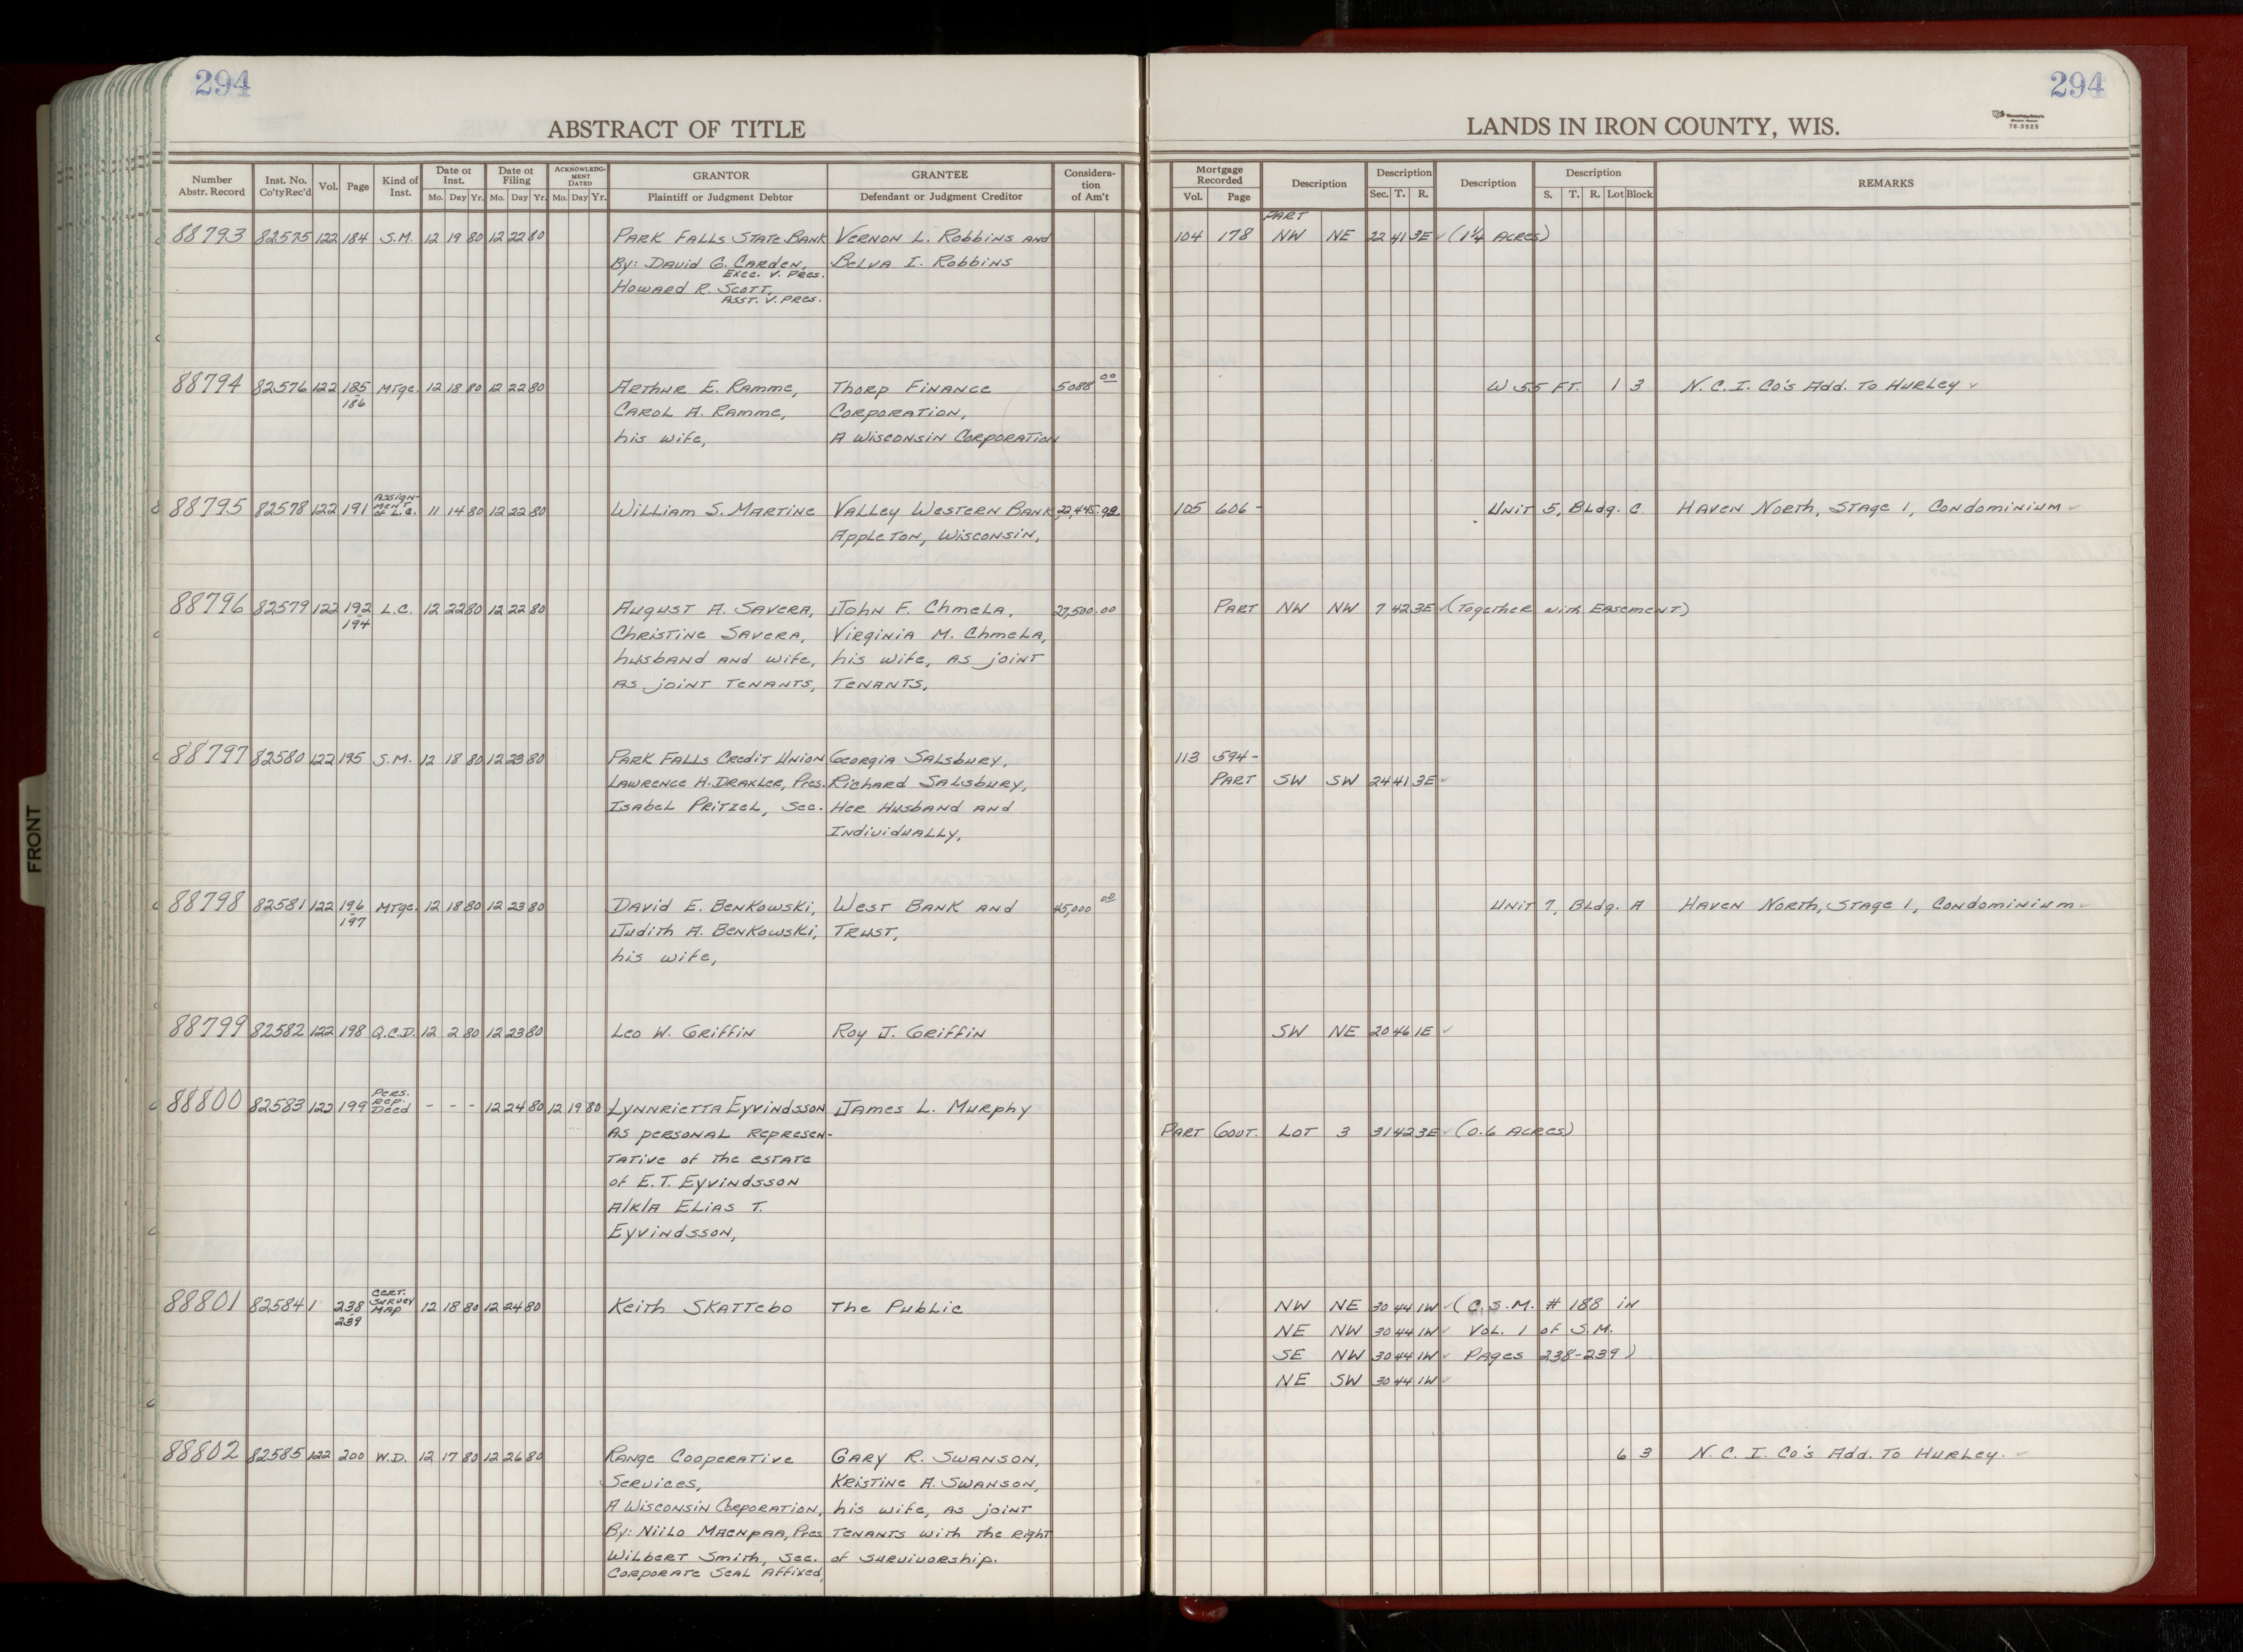 294
294
ABSTRACT OF TITLE
LANDS IN IRON COUNTY, WIS.
78-3525
Number Abstr. Record | Inst. No. Co'ty Rec'd | Vol. | Page | Kind of Inst. | Date of Inst. Mo. Day Yr. | Date of Filing Mo. Day Yr. | ACKNOWLEDGMENT DATED Mo. Day Yr. | GRANTOR Plaintiff or Judgment Debtor | GRANTEE Defendant or Judgment Creditor | Consideration of Am't | Mortgage Recorded Vol. Page | Description | Description Sec. T. R. | Description | Description S. T. R. Lot Block | REMARKS
PART
88793 82575 122 184 S.M. 12 19 80 12 22 80 Park Falls State Bank Vernon L. Robbins and 104 178 NW NE 22 41 3E ✓ (1¼ Acres)
By: David G. Carden, Belva I. Robbins
Exec. V. Pres.
Howard R. Scott,
Asst. V. Pres.
88794 82576 122 185 Mtge. 12 18 80 12 22 80 Arthur E. Ramme, Thorp Finance 5088 00 W 55 FT. 1 3 N. C. I. Co's Add. To Hurley ✓
186 Carol A. Ramme, Corporation,
his wife, A Wisconsin Corporation
88795 82578 122 191 Assignment of L.C. 11 14 80 12 22 80 William S. Martine Valley Western Bank, 22,445.92 105 606 - Unit 5, Bldg. C Haven North, Stage 1, Condominium ✓
Appleton, Wisconsin,
88796 82579 122 192 L.C. 12 22 80 12 22 80 August A. Savera, John F. Chmela, 27,500.00 Part NW NW 7 42 3E ✓ (Together with Easement)
194 Christine Savera, Virginia M. Chmela,
husband and wife, his wife, as joint
as joint tenants, tenants,
88797 82580 122 195 S.M. 12 18 80 12 23 80 Park Falls Credit Union Georgia Salsbury, 113 594 -
Lawrence H. Draxler, Pres. Richard Salsbury, Part SW SW 24 41 3E ✓
Isabel Pritzel, Sec. Her Husband and
Individually,
88798 82581 122 196 Mtge. 12 18 80 12 23 80 David E. Benkowski, West Bank and 45,000 00 Unit 7, Bldg. A Haven North, Stage 1, Condominium ✓
197 Judith A. Benkowski, Trust,
his wife,
88799 82582 122 198 Q.C.D. 12 2 80 12 23 80 Leo W. Griffin Roy J. Griffin SW NE 20 46 1E ✓
88800 82583 122 199 Pers. Rep. Deed - - - 12 24 80 12 19 80 Lynnrietta Eyvindsson James L. Murphy
as personal represen- Part Govt. Lot 3 31 42 3E ✓ (0.6 Acres)
tative of the estate
of E.T. Eyvindsson
A/K/A Elias T.
Eyvindsson,
88801 82584 1 238 Cert. Survey Map 12 18 80 12 24 80 Keith Skattebo The Public NW NE 30 44 1W ✓ (C.S.M. # 188 in
239 NE NW 30 44 1W ✓ Vol. 1 of S.M.
SE NW 30 44 1W ✓ Pages 238-239)
NE SW 30 44 1W ✓
88802 82585 122 200 W.D. 12 17 80 12 26 80 Range Cooperative Gary R. Swanson, 6 3 N. C. I. Co's Add. To Hurley. ✓
Services, Kristine A. Swanson,
A Wisconsin Corporation, his wife, as joint
By: Niilo Maenpaa, Pres tenants with the right
Wilbert Smith, Sec. of survivorship.
Corporate Seal Affixed,
FRONT